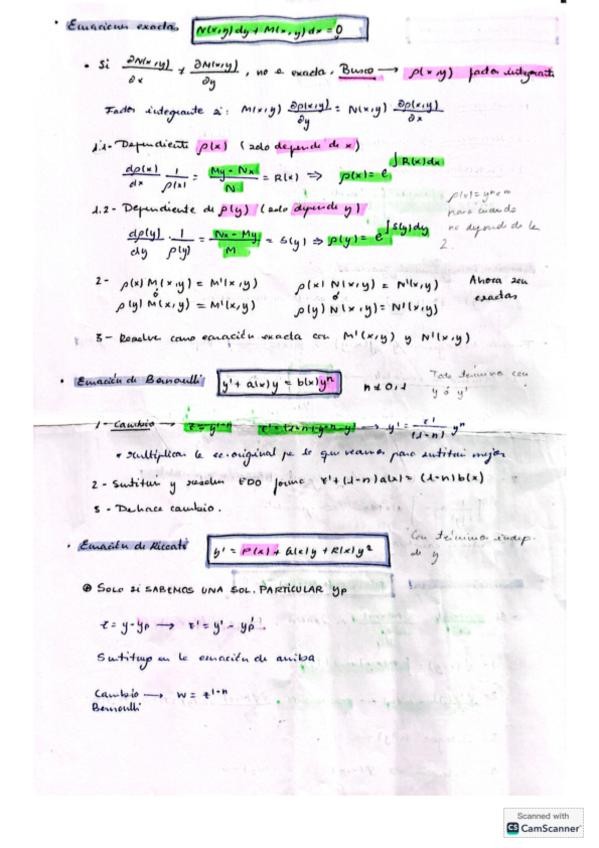 • Ecuaciones exactas N(x,y)dy + M(x,y)dx = 0
• Si ∂N(x,y)/∂x ≠ ∂M(x,y)/∂y, no e exacta. Busco → ρ(x,y) factor integrante
Factor integrante si: M(x,y) ∂ρ(x,y)/∂y = N(x,y) ∂ρ(x,y)/∂x
1.1- Dependiente ρ(x) (solo depende de x)
dρ(x)/dx 1/ρ(x) = My - Nx/N = R(x) ⇒ ρ(x) = e^∫R(x)dx
1.2- Dependiente de ρ(y) (solo depende y)
dρ(y)/dy · 1/ρ(y) = Nx - My/M = S(y) ⇒ ρ(y) = e^∫S(y)dy
para cuando
no depende de
2.
2- ρ(x) M(x,y) = M'(x,y) ρ(x) N(x,y) = N'(x,y) Ahora son
ó ó exactas
ρ(y) M(x,y) = M'(x,y) ρ(y) N(x,y) = N'(x,y)
3- Resolver como ecuación exacta con M'(x,y) y N'(x,y)
• Ecuación de Bernoulli y' + a(x)y = b(x)yⁿ n≠0,1 Todo término con
y ó y'
1- Cambio → z = y^1-n z' = (1-n)·y^-n·y' → y' = z'/(1-n) yⁿ
• Multiplicar la ec. original por lo que veamos para sutituir mejor
2- Sutituir y resolver EDO forma z' + (1-n)a(x)z = (1-n)b(x)
3- Deshace cambio.
• Ecuación de Riccati y' = P(x) + Q(x)y + R(x)y² Con término indep.
de y
⊕ SOLO SI SABEMOS UNA SOL. PARTICULAR yp
z = y - yp → z' = y' - yp'
Sutituyo en la ecuación de arriba
Cambio → w = z^1-n
Bernoulli
Scanned with
CS CamScanner